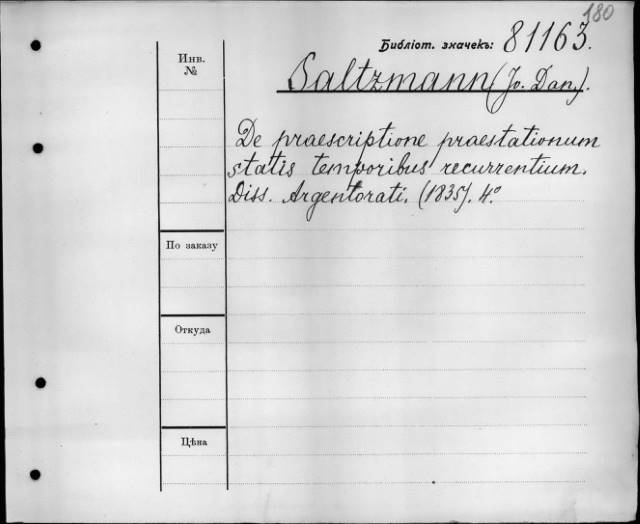 180
Библіот. значекъ: 81163.
Инв.
№
Saltzmann (Jo. Dan.).
De praescriptione praestationum
statis temporibus recurrentium.
Diss. Argentorati. (1835). 4.º
По заказу
Откуда
Цѣна